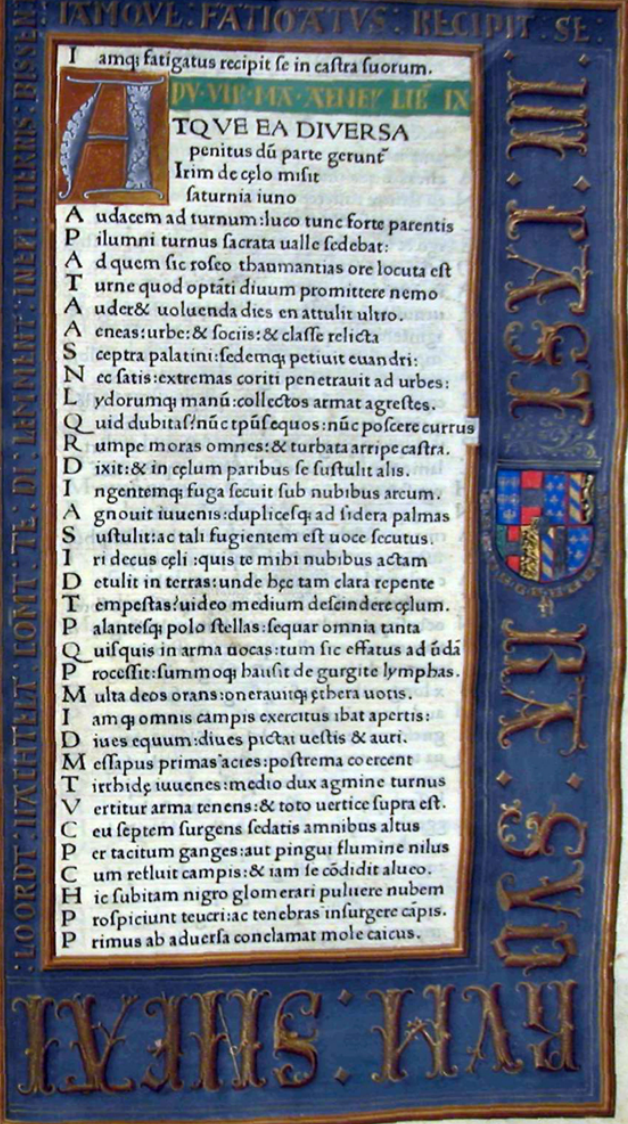 IAMQVE: FATIGATVS: RECIPIT SE:
I amq; fatigatus recipit se in castra suorum.
TQVE EA DIVERSA
penitus dū parte gerunt̄
Irim de cęlo misit
saturnia iuno
A udacem ad turnum: luco tunc forte parentis
P ilumni turnus sacrata ualle sedebat:
A d quem sic roseo thaumantias ore locuta est
T urne quod optāti diuum promittere nemo
A uder& uoluenda dies en attulit ultro.
A eneas: urbe: & sociis: & classe relicta
S ceptra palatini: sedemq; petiuit euandri:
N ec satis: extremas coriti penetrauit ad urbes:
L ydorumq; manū: collectos armat agrestes.
Q uid dubitas? nūc tp̄us equos: nūc poscere currus
R umpe moras omnes: & turbata arripe castra.
D ixit: & in cęlum paribus se sustulit alis.
I ngentemq; fuga secuit sub nubibus arcum.
A gnouit iuuenis: duplicesq; ad sidera palmas
S ustulit: ac tali fugientem est uoce secutus.
I ri decus cęli: quis te mihi nubibus actam
D etulit in terras: unde hęc tam clara repente
T empestas? uideo medium descindere cęlum.
P alantesq; polo stellas: sequar omnia tanta
Q uisquis in arma uocas: tum sic effatus ad ūdā
P rocessit: summoq; hausit de gurgite lymphas.
M ulta deos orans: onerauitq; ęthera uotis.
I am q; omnis campis exercitus ibat apertis:
D iues equum: diues pictai uestis & auri.
M essapus primas acies: postrema coercent
T irrhidę iuuenes: medio dux agmine turnus
V ertitur arma tenens: & toto uertice supra est.
C eu septem surgens sedatis amnibus altus
P er tacitum ganges: aut pingui flumine nilus
C um refluit campis: & iam se cōdidit alueo.
H ic subitam nigro glomerari puluere nubem
P rospiciunt teucri: ac tenebras insurgere cāpis.
P rimus ab aduersa conclamat mole caicus.